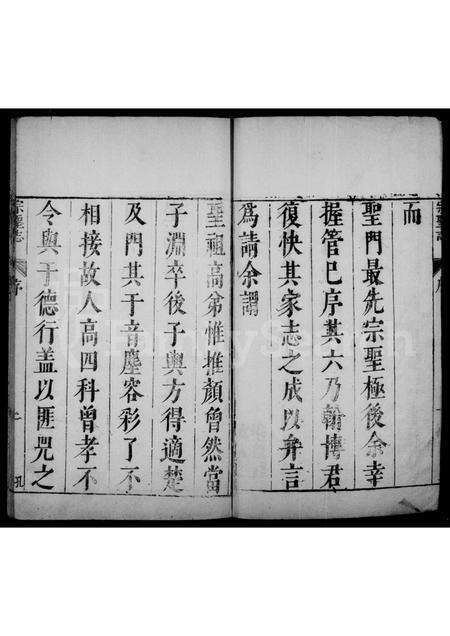 而
聖門最先宗聖極後余幸
握管已序其六乃翰博君
復快其家志之成以弁言
為請余謂
聖祖高弟惟堆顏曾然當
子淵卒後子與方得適楚
及門其于音塵容彩了不
相接故人高四科曾孝不
令與于德行蓋以匪兕之
宗聖志
序
上
孔